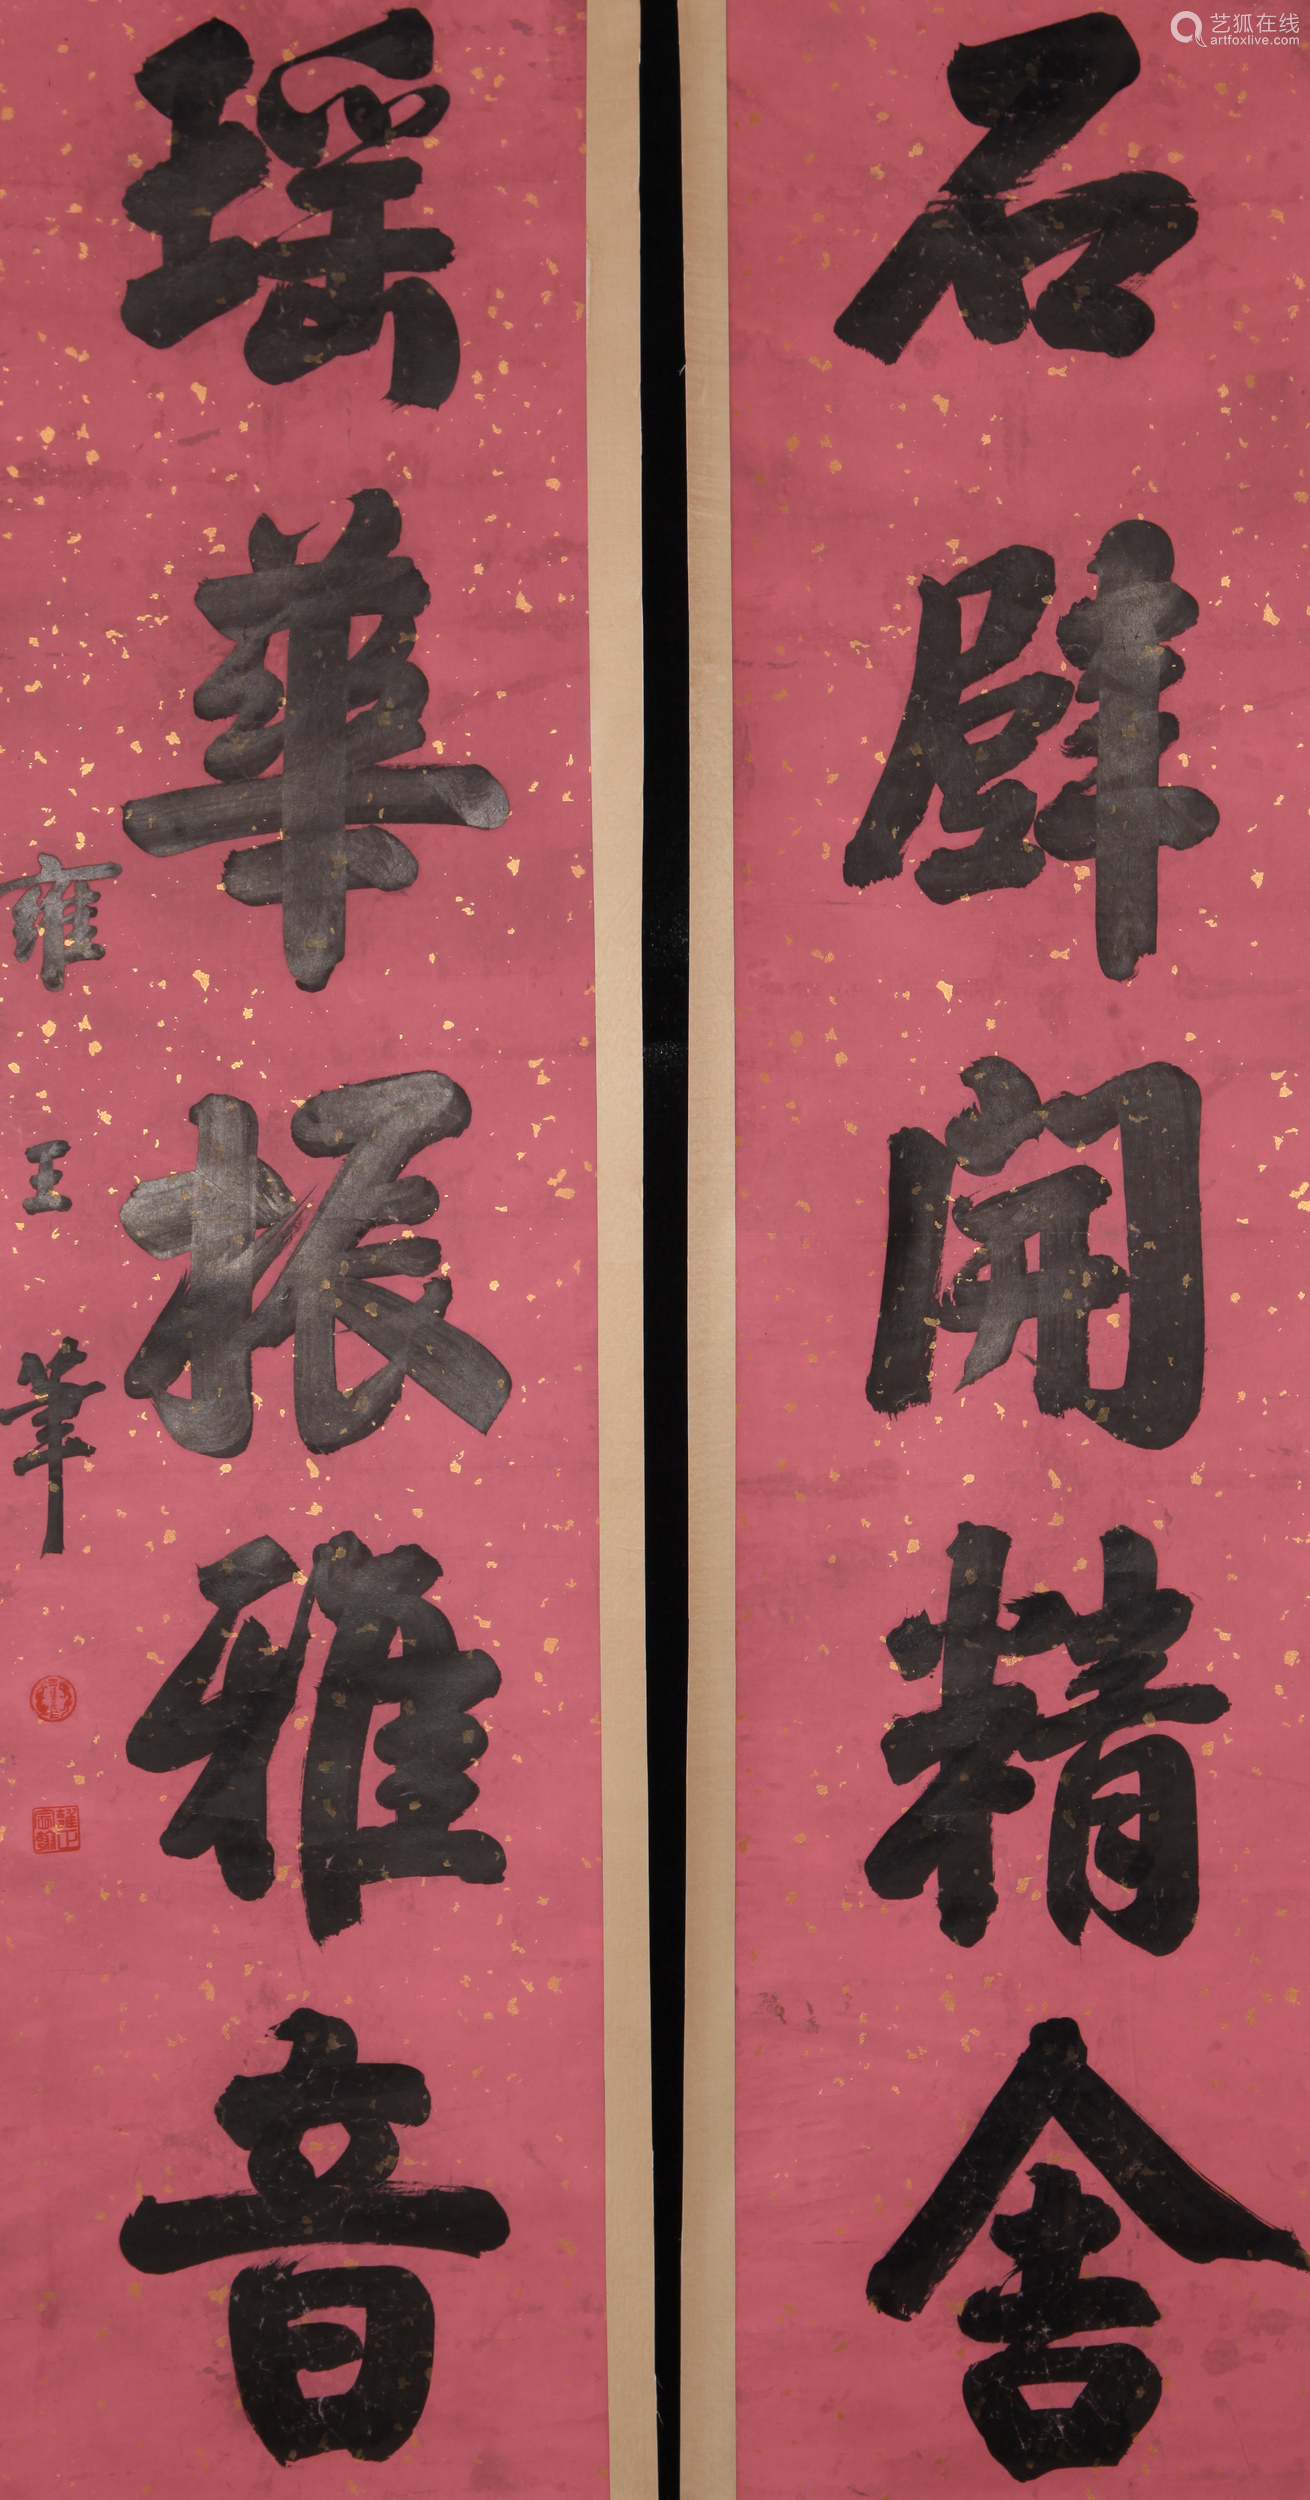 石辟開精舍
瑶華振雅音
雍王筆
雍正宸翰
艺狐在线
artfoxlive.com